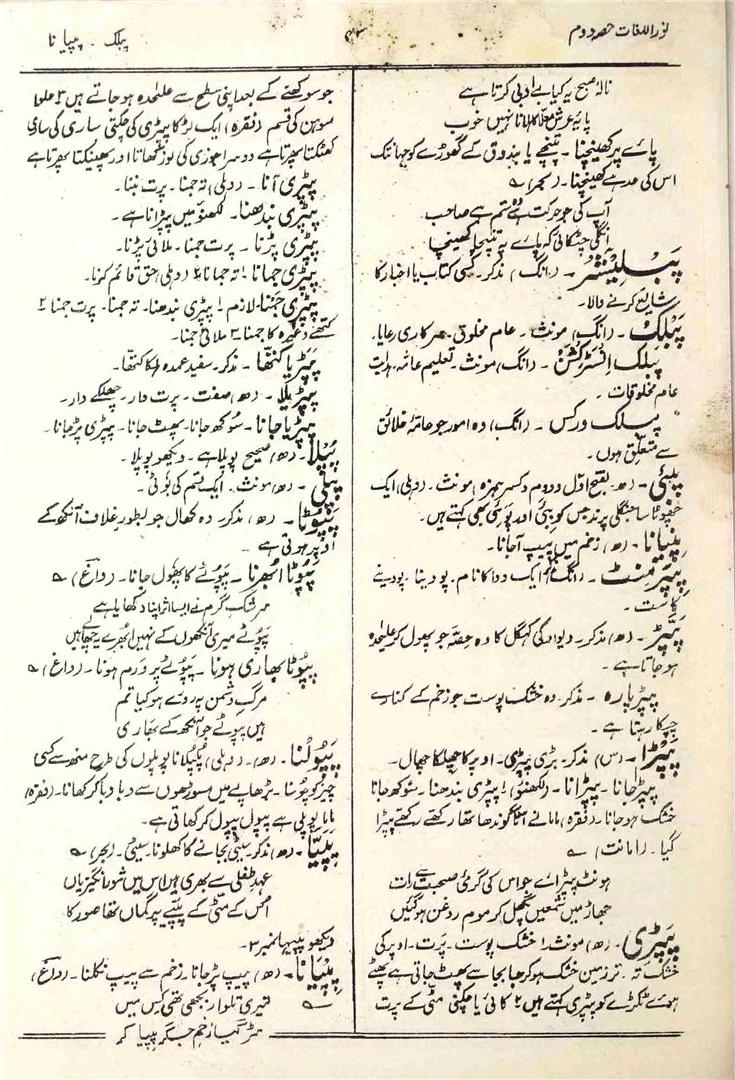 نور اللغات حصہ دوم
پبلک ۔ پپیانا
نالۂ صبح یہ کیا بے ادبی کرتا ہے
پایۂ عرش معلّا کا ہلانا نہیں خوب
پائے پر کھینچنا ۔ تپنچے یا بندوق کے گھوڑے کو جہانتک
اس کی حد ہے کھینچنا ۔ (بحر) ؎
آپ کی جو حرکت ہے وہ ستم ہے صاحب
انگلی چٹکائی کہ پائے پہ تپنچا کھینچا
پَبلِیشَر ۔ (انگ) مذکر ۔ کسی کتاب یا اخبار کا
شایع کرنے والا ۔
پَبلِک ۔ (انگ) مونث ۔ عام مخلوق ۔ سرکاری رعایا ۔
پبلک اِنسٹرکشن ۔ (انگ) مونث ۔ تعلیم عامہ ۔ ہدایت
عام مخلوقات ۔
پبلک ورکس ۔ (انگ) وہ امور جو عامۂ خلائق
سے متعلق ہوں ۔
پَپئی ۔ (ھ) بفتح اوّل و دوم و کسر ہمزہ) مونث ۔ (دہلی) ایک
چھوٹا سا جنگلی پرند جس کو بئی اور پوئی بھی کہتے ہیں ۔
پپیانا ۔ (ھ) زخم میں پیپ آجانا ۔
پِپَرمنٹ ۔ (انگ) ایک دوا کا نام ۔ پودینا ۔ پودینے
کا ست ۔
پَپّڑ ۔ (ھ) مذکر ۔ دیوار کی کہگل کا وہ حصّہ جو پھول کر علیٰحدہ
ہو جاتا ہے ۔
پپڑیارہ ۔ مذکر ۔ وہ خشک پوست جو زخم کے کنارے
چپکا رہتا ہے ۔
پَپڑا ۔ (س) مذکر ۔ بڑی پپڑی ۔ اوپر کا چھلکا چھال ۔
پپڑ جانا ۔ پپڑانا ۔ (لکھنؤ) ۱ پپڑی بندھنا ۔ سوکھ جانا
خشک ہو جانا ۔ (فقرہ) ماما نے آٹا گوندھا تھا رکھے رکھے پپڑا
گیا ۔ (امانت) ؎
ہونٹ پپڑائے جو اس کی گرمیٔ صحبت سے رات
جھاڑ میں شمعیں پگھل کر موم روغن ہو گئیں
پَپڑی ۔ (ھ) مونث ۱ خشک پوست ۔ پرت ۔ اوپر کی
خشک تہ ۔ تر زمین خشک ہو کر جا بجا سے پھٹ جاتی ہے پھٹے
ہوئے ٹکڑے کو پپڑی کہتے ہیں ۲ کائی یا چکنی مٹی کے پرت
جو سوکھنے کے بعد اپنی سطح سے علیٰحدہ ہو جاتے ہیں ۳ حلوا
سوہن کی قسم (فقرہ) ایک لڑکا پپڑی کی چکتی ساری کی ساری
کھٹکتا پھرتا ہے دوسرا جوزی کی لوز کھاتا اور پھینکتا پھرتا ہے
پپڑی آنا ۔ (دہلی) تہ جمنا ۔ پرت بننا ۔
پپڑی بندھنا ۔ لکھنؤ میں پپڑانا ہے ۔
پپڑی پڑنا ۔ پرت جمنا ۔ ملائی پڑنا ۔
پپڑی جمانا ۱ تہ جمانا ۲ (دہلی) حق قائم کرنا ۔
پپڑی جمنا ۔ لازم ۱ پپڑی بندھنا ۔ تہ جمنا ۔ پرت جمنا ۲
کتھے وغیرہ کا جمنا ۔ ۳ ملائی جمنا ۔
پپڑیا کتھا ۔ مذکر ۔ سفید عمدہ ہلکا کتھا ۔
پپڑیلا ۔ (ھ) صفت ۔ پرت دار ۔ چھلکے دار ۔
پپڑیا جانا ۔ سوکھ جانا ۔ پھٹ جانا ۔ پپڑی پڑ جانا ۔
پُپلا ۔ (ھ) صحیح پوپلا ہے ۔ دیکھو پوپلا ۔
(ھ) مونث ۔ ایک قسم کی بوٹی ۔
پپوٹا ۔ (ھ) مذکر ۔ وہ کھال جو بطور غلاف آنکھ کے
اوپر ہوتی ہے ۔
پپوٹا اُبھرنا ۔ پپوٹے کا پھول جانا ۔ (داغ) ؎
سرشک گرم نے ایسا اثر اپنا دکھایا ہے
پپوٹے میری آنکھوں کے نہیں ابھرے یہ چھالے ہیں
پپوٹا بھاری ہونا ۔ پپوٹے پر ورم ہونا ۔ (داغ) ؎
مرگِ دشمن پہ روئے ہو کیا تم
ہیں پپوٹے جو آنکھ کے بھاری
پپولنا ۔ (ھ) ۔ (دہلی) پُپلانا پوپلوں کی طرح منھ سے کسی
چیز کو چوسنا ۔ بڑھاپے میں مسوڑھوں سے دبا دبا کر کھانا ۔ (فقرہ)
ماما پوپلی ہے پپول پپول کر کھاتی ہے ۔
پِپَیّا ۔ (ھ) مذکر ۔ سیٹی بجانے کا کھلونا ۔ سیٹی ۔ (بحر) ؎
عہد طفلی سے بھری ہیں اس میں شور انگیزیاں
اُس کے مٹی کے پپیے پر گماں تھا صور کا
دیکھو پپیہا نمبر ۲ ۔
پپیانا ۔ (ھ) پیپ پڑ جانا ۔ زخم سے پیپ نکلنا ۔ (داغ)
؎ تیری تلوار بجھی تھی کس میں
سڑ گیا زخم جگر پپیا کر